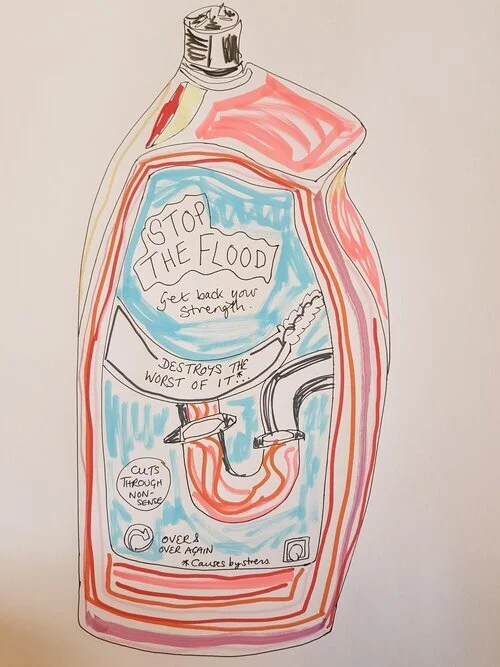 STOP
THE FLOOD
get back your
strength.
DESTROYS THE
WORST OF IT*...
CUTS
THROUGH
NON-
SENSE
OVER &
OVER AGAIN
*Causes by stress